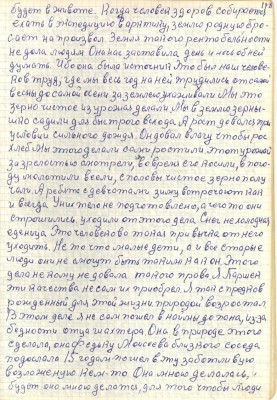 будет в животе. Когда человек здоров, собирается
ехать в экспедицию в Арктику, землю родную бро-
сает на произвол. Земля такого рентабельности
не дала людям. Она нас заставила день и ночь об ней
думать. Ибо она была источник. Это был наш челове-
ков труд, где мы весь год на ней трудились от самой
весны до самой осени за землею ухаживали. Мы это
зерно чистое из урожая делали. Мы в землю зерны-
шко садили для быстрого всхода. А рост давался при
условии сильного дождя. Он давал влагу чтобы рос
хлеб. Мы этого делали сами растили. Этот урожай
за зрелостью смотрели, вовремя его косили, в пого-
ду молотили веяли, с половы чистое зерно полу-
чали. А работе с девчатами зиму встречают как
и всегда. У них тело не подготовлено, а чего то они
страшились, уходили от этого дела. Снег не холодная
еденица. Это человеково такая привычка от него
уходить. Не то что малые дети, а и все старые
люди они не смогут быть таким как он. Этого
дела не кому не давала такого права. Я Паршек
эти качества не сам их приобрел. Я так с предков
рожденный для этой жизни природой возрастал
В этом деле я не сам пошел в найму до пана, из за
бедности отца шахтера. Она в природе этого
сделала, она Федьку Масеева близкого соседа
подослала. 15 годам пошел в эту заботливую
возложенную кем-то. Она мною делалась, и
будет оно мною делаться, для того чтобы люди